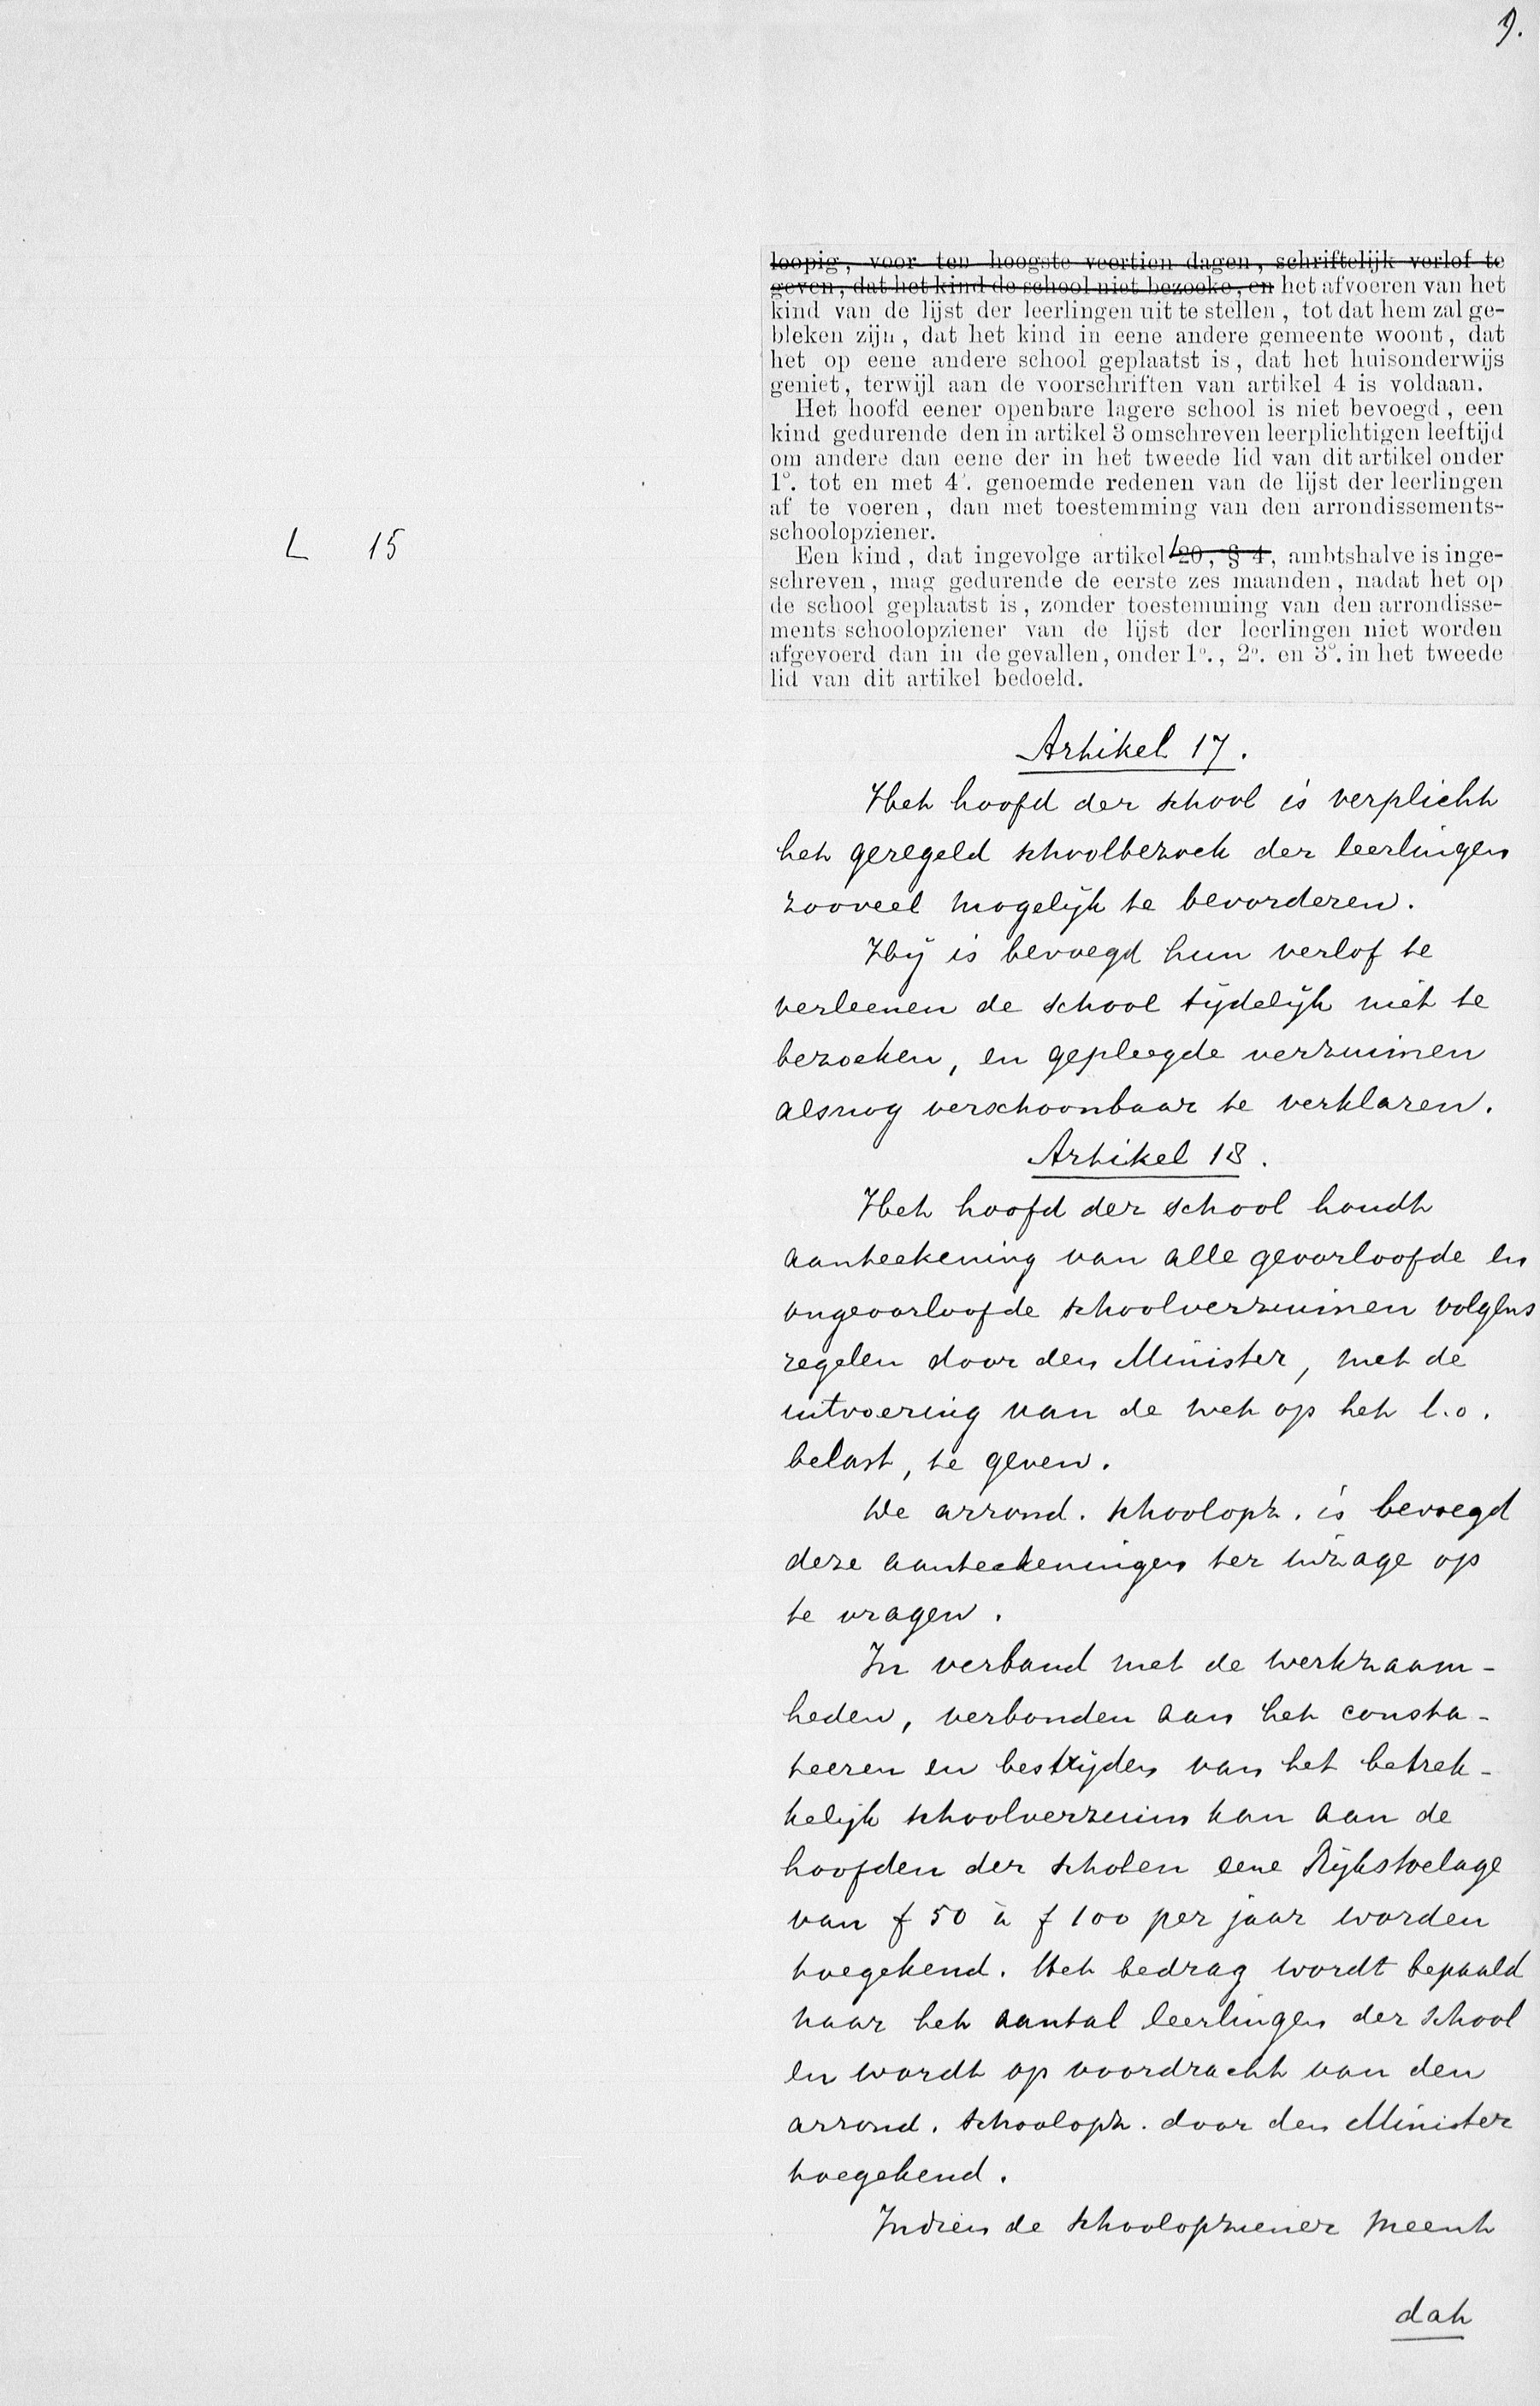 9.
loopig, voor ten hoogste veertien dagen, schriftelijk verlof te
geven, dat het kind de school niet bezoeke, en het afvoeren van het
kind van de lijst der leerlingen uit te stellen, tot dat hem zal ge-
bleken zijn, dat het kind in eene andere gemeente woont, dat
het op eene andere school geplaatst is, dat het huisonderwijs
geniet, terwijl aan de voorschriften van artikel 4 is voldaan.
Het hoofd eener openbare lagere school is niet bevoegd, een
kind gedurende den in artikel 3 omschreven leerplichtigen leeftijd
om andere dan eene der in het tweede lid van dit artikel onder
1°. tot en met 4°. genoemde redenen van de lijst der leerlingen
af te voeren, dan met toestemming van den arrondissements-
schoolopziener.
L 15
Een kind, dat ingevolge artikel 20, § 4, ambtshalve is inge-
schreven, mag gedurende de eerste zes maanden, nadat het op
de school geplaatst is, zonder toestemming van den arrondisse-
ments schoolopziener van de lijst der leerlingen niet worden
afgevoerd dan in de gevallen, onder 1°., 2°. en 3°. in het tweede
lid van dit artikel bedoeld.
Artikel 17.
Het hoofd der school is verplicht
het geregeld schoolbezoek der leerlingen
zooveel mogelijk te bevorderen.
Hij is bevoegd hun verlof te
verleenen de school tijdelijk niet te
bezoeken, en gepleegde verzuimen
alsnog verschoonbaar te verklaren.
Artikel 18.
Het hoofd der school houdt
aanteekening van alle geoorloofde en
ongeoorloofde schoolverzuimen volgens
regelen door den Minister, met de
uitvoering van de wet op het l.o.
belast, te geven.
De arrond. schoolopz. is bevoegd
deze aanteekeningen ter inzage op
te vragen.
In verband met de werkzaam-
heden, verbonden aan het consta-
teeren en bestrijden van het betrek-
kelijk schoolverzuim kan aan de
hoofden der scholen eene Rijkstoelage
van f 50 à f 100 per jaar worden
toegekend. Het bedrag wordt bepaald
naar het aantal leerlingen der school
en wordt op voordracht van den
arrond. schoolopz. door den Minister
toegekend.
Indien de schoolopziener meent
dat